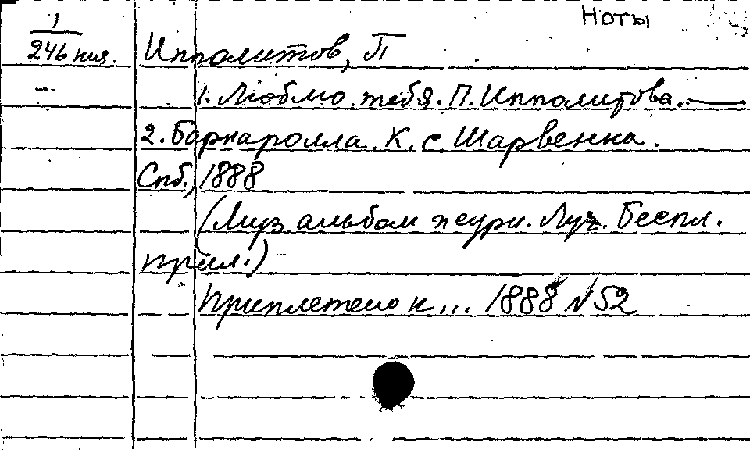 Ноты
1
246 кия. Ипполитов, П
1. Люблю тебя. П. Ипполитова. —
2. Баркаролла. К. с Шарвенка.
Спб., 1888
(Муз. альбом журн. Луч. Беспл.
прил.)
Приплетено к... 1888 №52